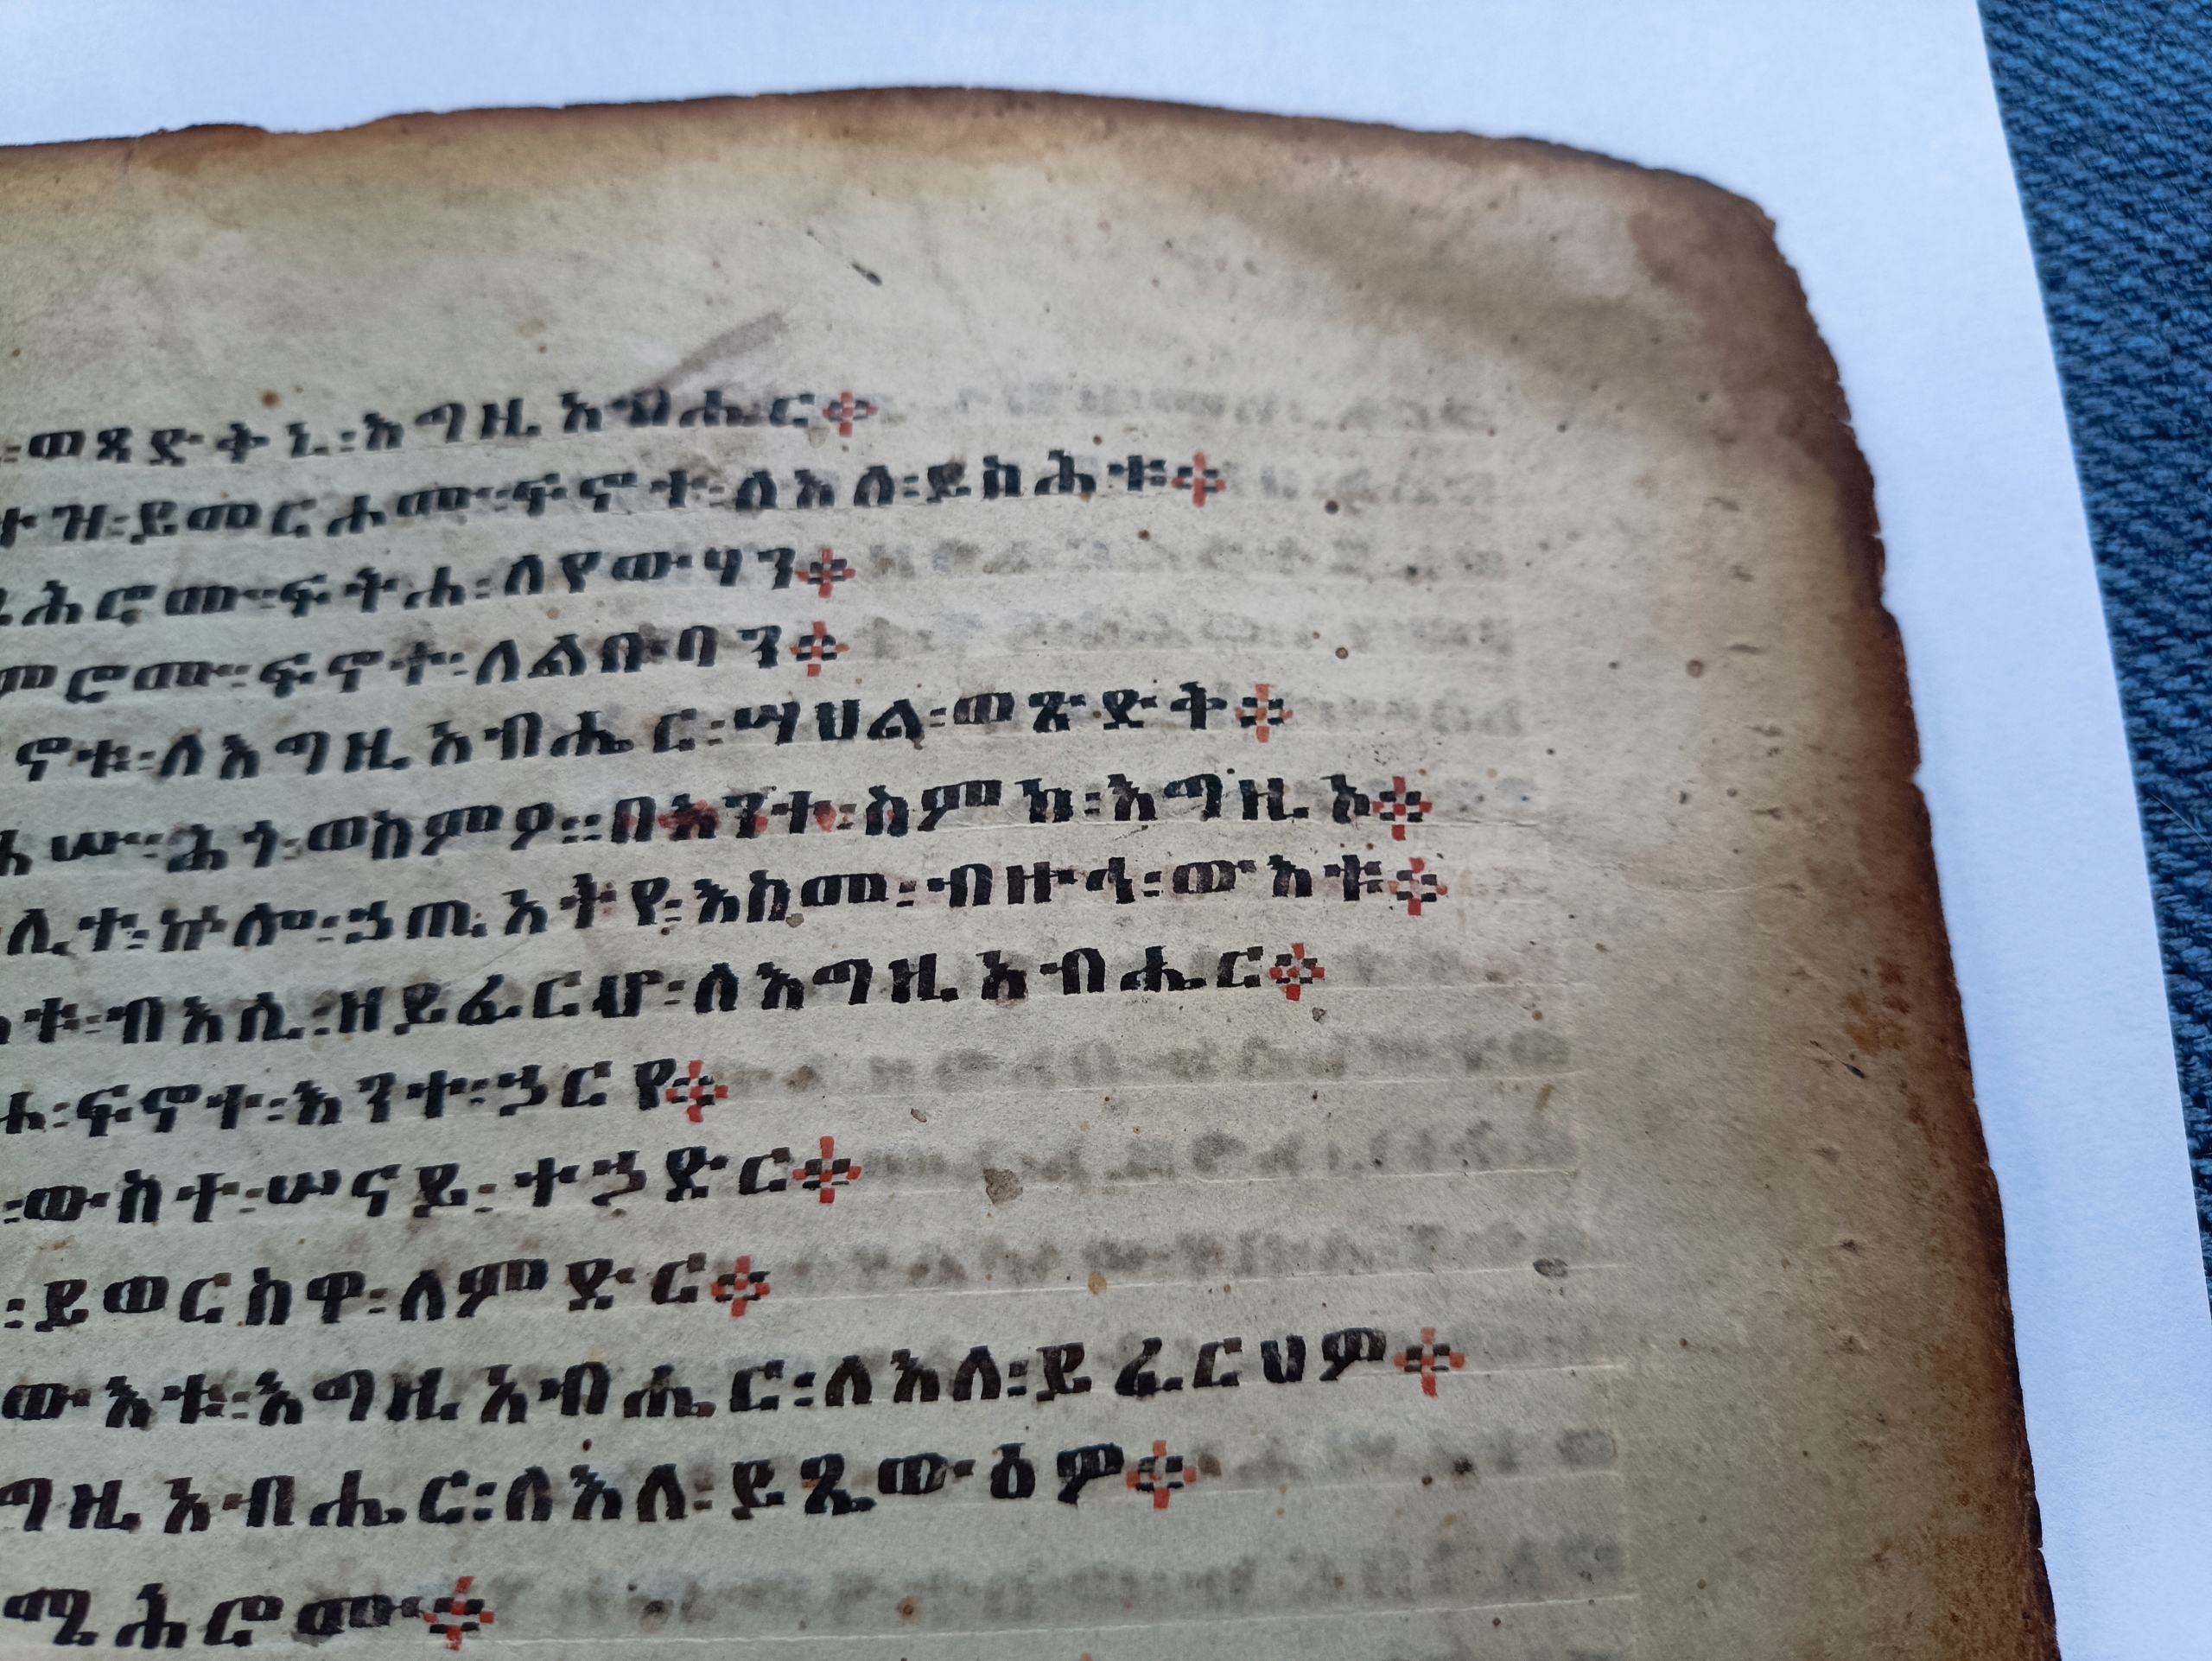 ፡ወጻድቅኒ፡እግዚአብሔር፨
ዝ፡ይመርሖሙ፡ፍኖተ፡ለእለ፡ይስሕቱ፨
ሕሮሙ፡ፍትሐ፡ለየውሃን፨
ምሮሙ፡ፍኖተ፡ለልቡባን፨
ኖቱ፡ለእግዚአብሔር፡ሣህል፡ወጽድቅ፨
ሡ፡ሕጎ፡ወስምዖ።በእንተ፡ስምከ፡እግዚኦ፨
ሊተ፡ኵሎ፡ኃጢአትየ፡እስመ፡ብዙኅ፡ውእቱ፨
ቱ፡ብእሲ፡ዘይፈርሆ፡ለእግዚአብሔር፨
፡ፍኖተ፡እንተ፡ኃርየ፨
፡ውስተ፡ሠናይ፡ተኃድር፨
፡ይወርስዋ፡ለምድር፨
ውእቱ፡እግዚአብሔር፡ለእለ፡ይፈርህዎ፨
ግዚአብሔር፡ለእለ፡ይጼውዕዎ፨
ሜሕሮሙ፨